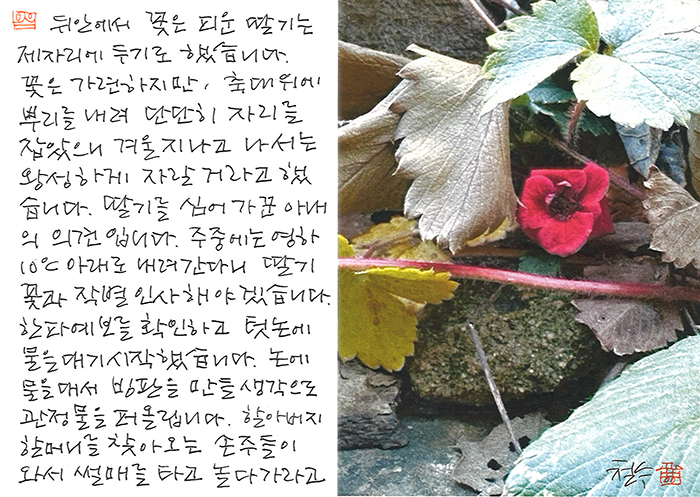 뒤안에서 꽃은 피운 딸기는
제자리에 두기로 했습니다.
꽃은 가련하지만, 축대위에
뿌리를 내려 단단히 자리를
잡았으니 겨울 지나고 나서는
왕성하게 자랄 거라고 했
습니다. 딸기를 심어 가꾼 아내
의 의견입니다. 주중에는 영하
10℃ 아래로 내려간다니 딸기
꽃과 작별인사해야겠습니다.
한파예보를 확인하고 텃논에
물을대기시작했습니다. 논에
물을대서 빙판을 만들 생각으로
관정물을 퍼올립니다. 할아버지
할머니를 찾아오는 손주들이
와서 썰매를 타고 놀다가라고
철수